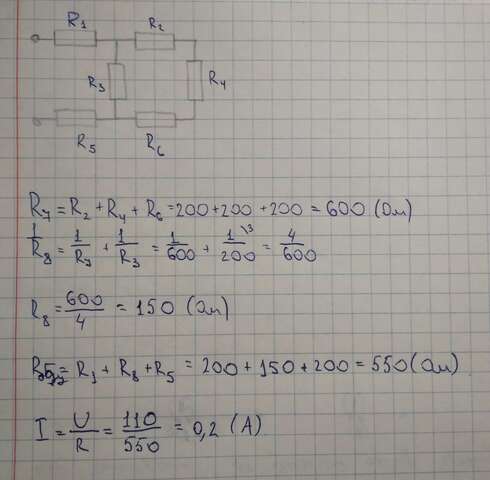 R1 R2
R3 R4
R5 R6
R7 = R2 + R4 + R6 = 200 + 200 + 200 = 600 (Ом)
1/R8 = 1/R7 + 1/R3 = 1/600 + 1/200 \3 = 4/600
R8 = 600/4 = 150 (Ом)
= R1 + R8 + R5 = 200 + 150 + 200 = 550 (Ом)
I = U/R = 110/550 = 0,2 (А)